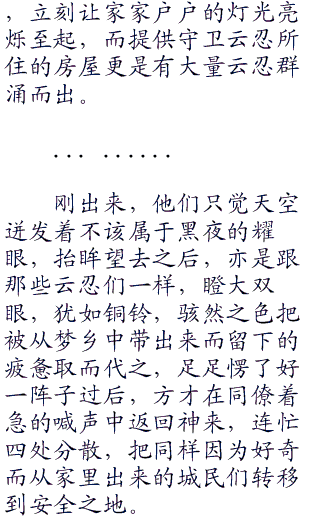 ，立刻让家家户户的灯光亮
烁至起，而提供守卫云忍所
住的房屋更是有大量云忍群
涌而出。
... ......
刚出来，他们只觉天空
迸发着不该属于黑夜的耀
眼，抬眸望去之后，亦是跟
那些云忍们一样，瞪大双
眼，犹如铜铃，骇然之色把
被从梦乡中带出来而留下的
疲惫取而代之，足足愣了好
一阵子过后，方才在同僚着
急的喊声中返回神来，连忙
四处分散，把同样因为好奇
而从家里出来的城民们转移
到安全之地。